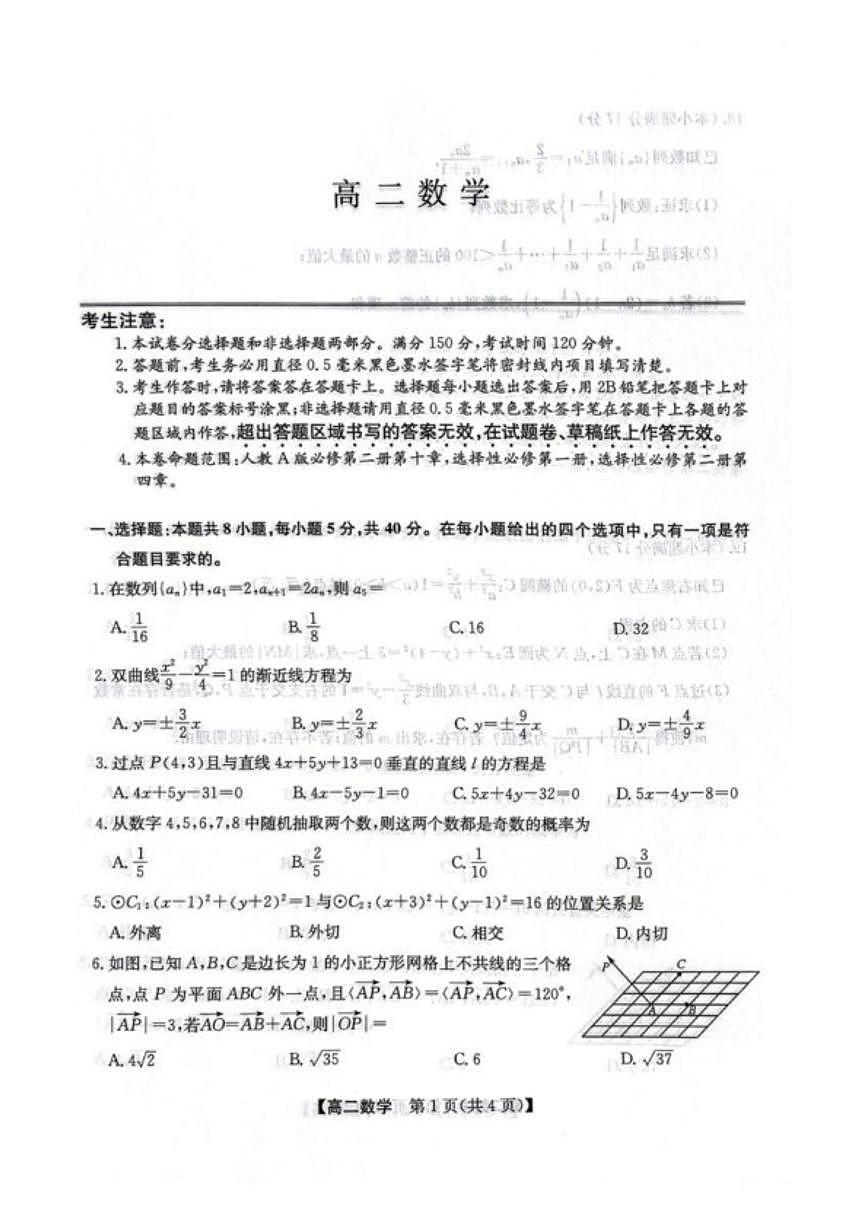 高二数学
考生注意：
1.本试卷分选择题和非选择题两部分。满分150分,考试时间120分钟。
2.答题前,考生务必用直径0.5毫米黑色墨水签字笔将密封线内项目填写清楚。
3.考生作答时,请将答案答在答题卡上。选择题每小题选出答案后,用2B铅笔把答题卡上对
应题目的答案标号涂黑;非选择题请用直径0.5毫米黑色墨水签字笔在答题卡上各题的答
题区域内作答,超出答题区域书写的答案无效,在试题卷、草稿纸上作答无效。
4.本卷命题范围:人教A版必修第二册第十章,选择性必修第一册,选择性必修第二册第
四章。
一、选择题:本题共8小题,每小题5分,共40分。在每小题给出的四个选项中,只有一项是符
合题目要求的。
1.在数列{aₙ}中,a₁=2,aₙ₊₁=2aₙ,则a₅=
A. 1/16 B. 1/8 C. 16 D. 32
2.双曲线x²/9−y²/4=1的渐近线方程为
A. y=±3/2x B. y=±2/3x C. y=±9/4x D. y=±4/9x
3.过点P(4,3)且与直线4x+5y+13=0垂直的直线l的方程是
A. 4x+5y−31=0 B. 4x−5y−1=0 C. 5x+4y−32=0 D. 5x−4y−8=0
4.从数字4,5,6,7,8中随机抽取两个数,则这两个数都是奇数的概率为
A. 1/5 B. 2/5 C. 1/10 D. 3/10
5.⊙C₁:(x−1)²+(y+2)²=1与⊙C₂:(x+3)²+(y−1)²=16的位置关系是
A.外离 B.外切 C.相交 D.内切
6.如图,已知A,B,C是边长为1的小正方形网格上不共线的三个格
点,点P为平面ABC外一点,且⟨AP→,AB→⟩=⟨AP→,AC→⟩=120°,
|AP→|=3,若AO→=AB→+AC→,则|OP→|=
P C A B
A. 4√2 B. √35 C. 6 D. √37
【高二数学 第1页(共4页)】